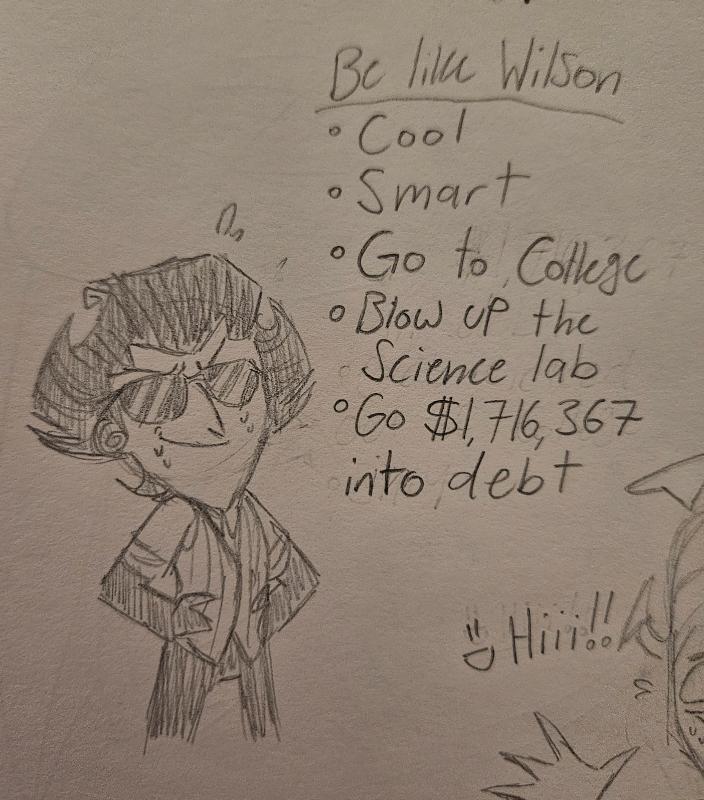 Be like Wilson
• Cool
• Smart
• Go to College
• Blow up the
Science lab
• Go $1,716,367
into debt
Hiii!!